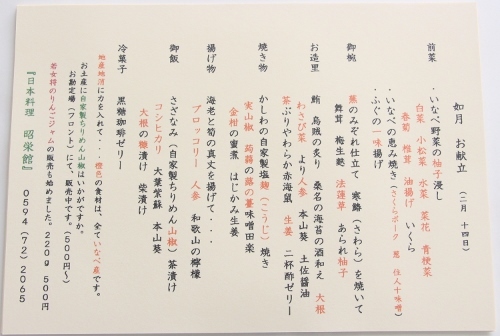 如月 お献立 （二月 十四日）
前菜
・いなべ野菜の柚子浸し
白菜 小松菜 水菜 菜花 青梗菜
春菊 椎茸 油揚げ いくら
・いなべの恵み焼き（さくらポーク 葱 住人十味噌）
・ふぐの一味揚げ
御椀
蕪のみぞれ仕立て 寒鰆（さわら）を焼いて
舞茸 梅生麩 法蓮草 あられ柚子
お造里
鮪 烏賊の炙り 桑名の海苔の酒和え 大根
わさび菜 より人参 本山葵 土佐醤油
茶ぶりやわらか赤海鼠 生姜 二杯酢ゼリー
焼き物
かしわの自家製塩麹（こうじ）焼き
実山椒 蒟蒻の蕗の薹味噌田楽
金柑の蜜煮 はじかみ生姜
揚げ物
海老と筍の真丈を揚げて・・・
ブロッコリー 人参 和歌山の檸檬
御飯
さざなみ（自家製ちりめん山椒）茶漬け
コシヒカリ 大葉紫蘇 本山葵
大根の糠漬け 柴漬け
冷菓子
黒糖珈琲ゼリー
地産地消に力を入れて・・・橙色の食材は、全ていなべ産です。
お土産に自家製ちりめん山椒はいかがですか。
お勘定場（フロント）にて、販売中です。（５００円～）
若女将のりんごジャムの販売も始めました。２２０ｇ ５００円
『日本料理 昭栄館』 ０５９４（７２）２０６５